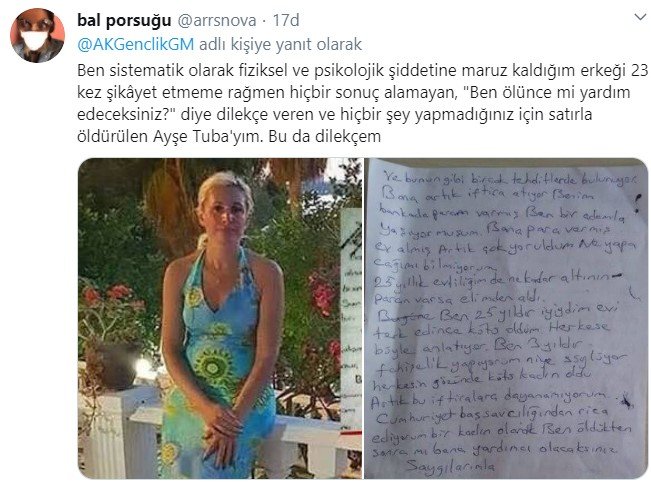 bal porsuğu @arrsnova · 17d
@AKGenclikGM adlı kişiye yanıt olarak
Ben sistematik olarak fiziksel ve psikolojik şiddetine maruz kaldığım erkeği 23
kez şikâyet etmeme rağmen hiçbir sonuç alamayan, "Ben ölünce mi yardım
edeceksiniz?" diye dilekçe veren ve hiçbir şey yapmadığınız için satırla
öldürülen Ayşe Tuba'yım. Bu da dilekçem
Ve bunun gibi birçok tehditlerde bulunuyor.
Bana artık iftira atıyor Benim
bankada param varmış Ben bir adamla
yaşıyormuşum. Bana para vermiş
ev almış Artık çok yoruldum Ne yapa
cağımı bilmiyorum
25 yıllık evliliğimde nekadar altının
param varsa elimden aldı.
Ben 25 yıldır iyiydim evi
terk edince kötü oldum Herkese
böyle anlatıyor. Ben 3 yıldır
fahişelik yapıyorum niye söylüyor
herkesin gözünde kötü kadın oldu
Artık bu iftiralara dayanamıyorum.
Cumhuriyet başsavcılığından rica
ediyorum bir kadın olarak Ben öldükten
sonra mı bana yardımcı olacaksınız
Saygılarımla